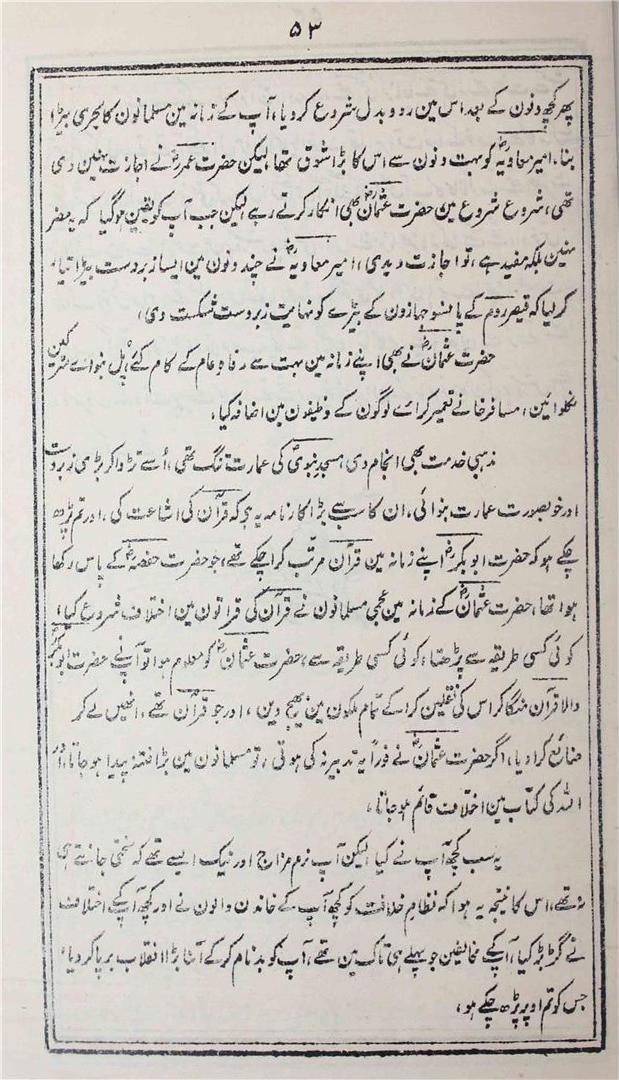 ۵۳
پھر کچھ دنون کے بعد اس مین ردوبدل شروع کردیا، آپ کے زمانہ مین مسلمانون کا بحری بیڑا
بنا، امیر معاویہؓ کو بہت دنون سے اس کا بڑا شوق تھا، لیکن حضرت عمرؓ نے اجازت نہین دی
تھی، شروع شروع مین حضرت عثمانؓ بھی انکار کرتے رہے لیکن جب آپ کو یقین ہوگیا کہ یہ مضر
نہین بلکہ مفید ہے، تو اجازت دیدی، امیر معاویہؓ نے چند دنون مین ایسا زبردست بیڑا تیار
کرلیا کہ قیصر روم کے پانسو جہازون کے بیڑے کو نہایت زبردست شکست دی،
حضرت عثمانؓ نے بھی اپنے زمانہ مین بہت سے رفاہِ عام کے کام کئے، پل بنوائے سڑکین
نکلوائین، مسافر خانے تعمیر کرائے لوگون کے وظیفون مین اضافہ کیا،
مذہبی خدمت بھی انجام دی، مسجدِ نبویؐ کی عمارت تنگ تھی، اُسے تڑوا کر بڑی زبردست
اور خوبصورت عمارت بنوائی، ان کا سب سے بڑا کارنامہ یہ ہی کہ قرآن کی اشاعت کی، اور تم پڑھ
چکے ہو کہ حضرت ابوبکرؓ اپنے زمانہ مین قرآن مرتب کراچکے تھے، جو حضرت حفصہؓ کے پاس رکھا
ہوا تھا، حضرت عثمانؓ کے زمانہ مین عجمی مسلمانون نے قرآن کی قرأتون مین اختلاف شروع کیا،
کوئی کسی طریقہ سے پڑھتا، کوئی کسی طریقہ سے، حضرت عثمانؓ کو معلوم ہوا تو آپنے حضرت ابوبکرؓ
والا قرآن منگا کر اس کی نقلین کراکے تمام ملکون مین بھیج دین، اور جو قرآن تھے، انھین لے کر
ضائع کرادیا، اگر حضرت عثمانؓ نے فوراً یہ تدبیر نہ کی ہوتی، تو مسلمانون مین بڑا فتنہ پیدا ہوجاتا، اور
اللہ کی کتاب مین اختلاف قائم ہوجاتا،
یہ سب کچھ آپ نے کیا لیکن آپ نرم مزاج اور نیک ایسے تھے کہ سختی جانتے ہی
نہ تھے، اس کا نتیجہ یہ ہوا کہ نظامِ خلافت کو کچھ آپ کے خاندن والون نے اور کچھ آپکے اختلاف
نے گڑبڑ کیا، آپکے مخالفین جو پہلے ہی تاک مین تھے، آپ کو بدنام کرکے اتنا بڑا انقلاب برپا کردیا،
جس کو تم اوپر پڑھ چکے ہو،